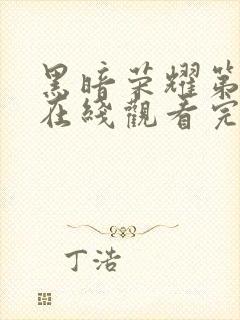 黑暗荣耀第
在线觀看完
丁浩